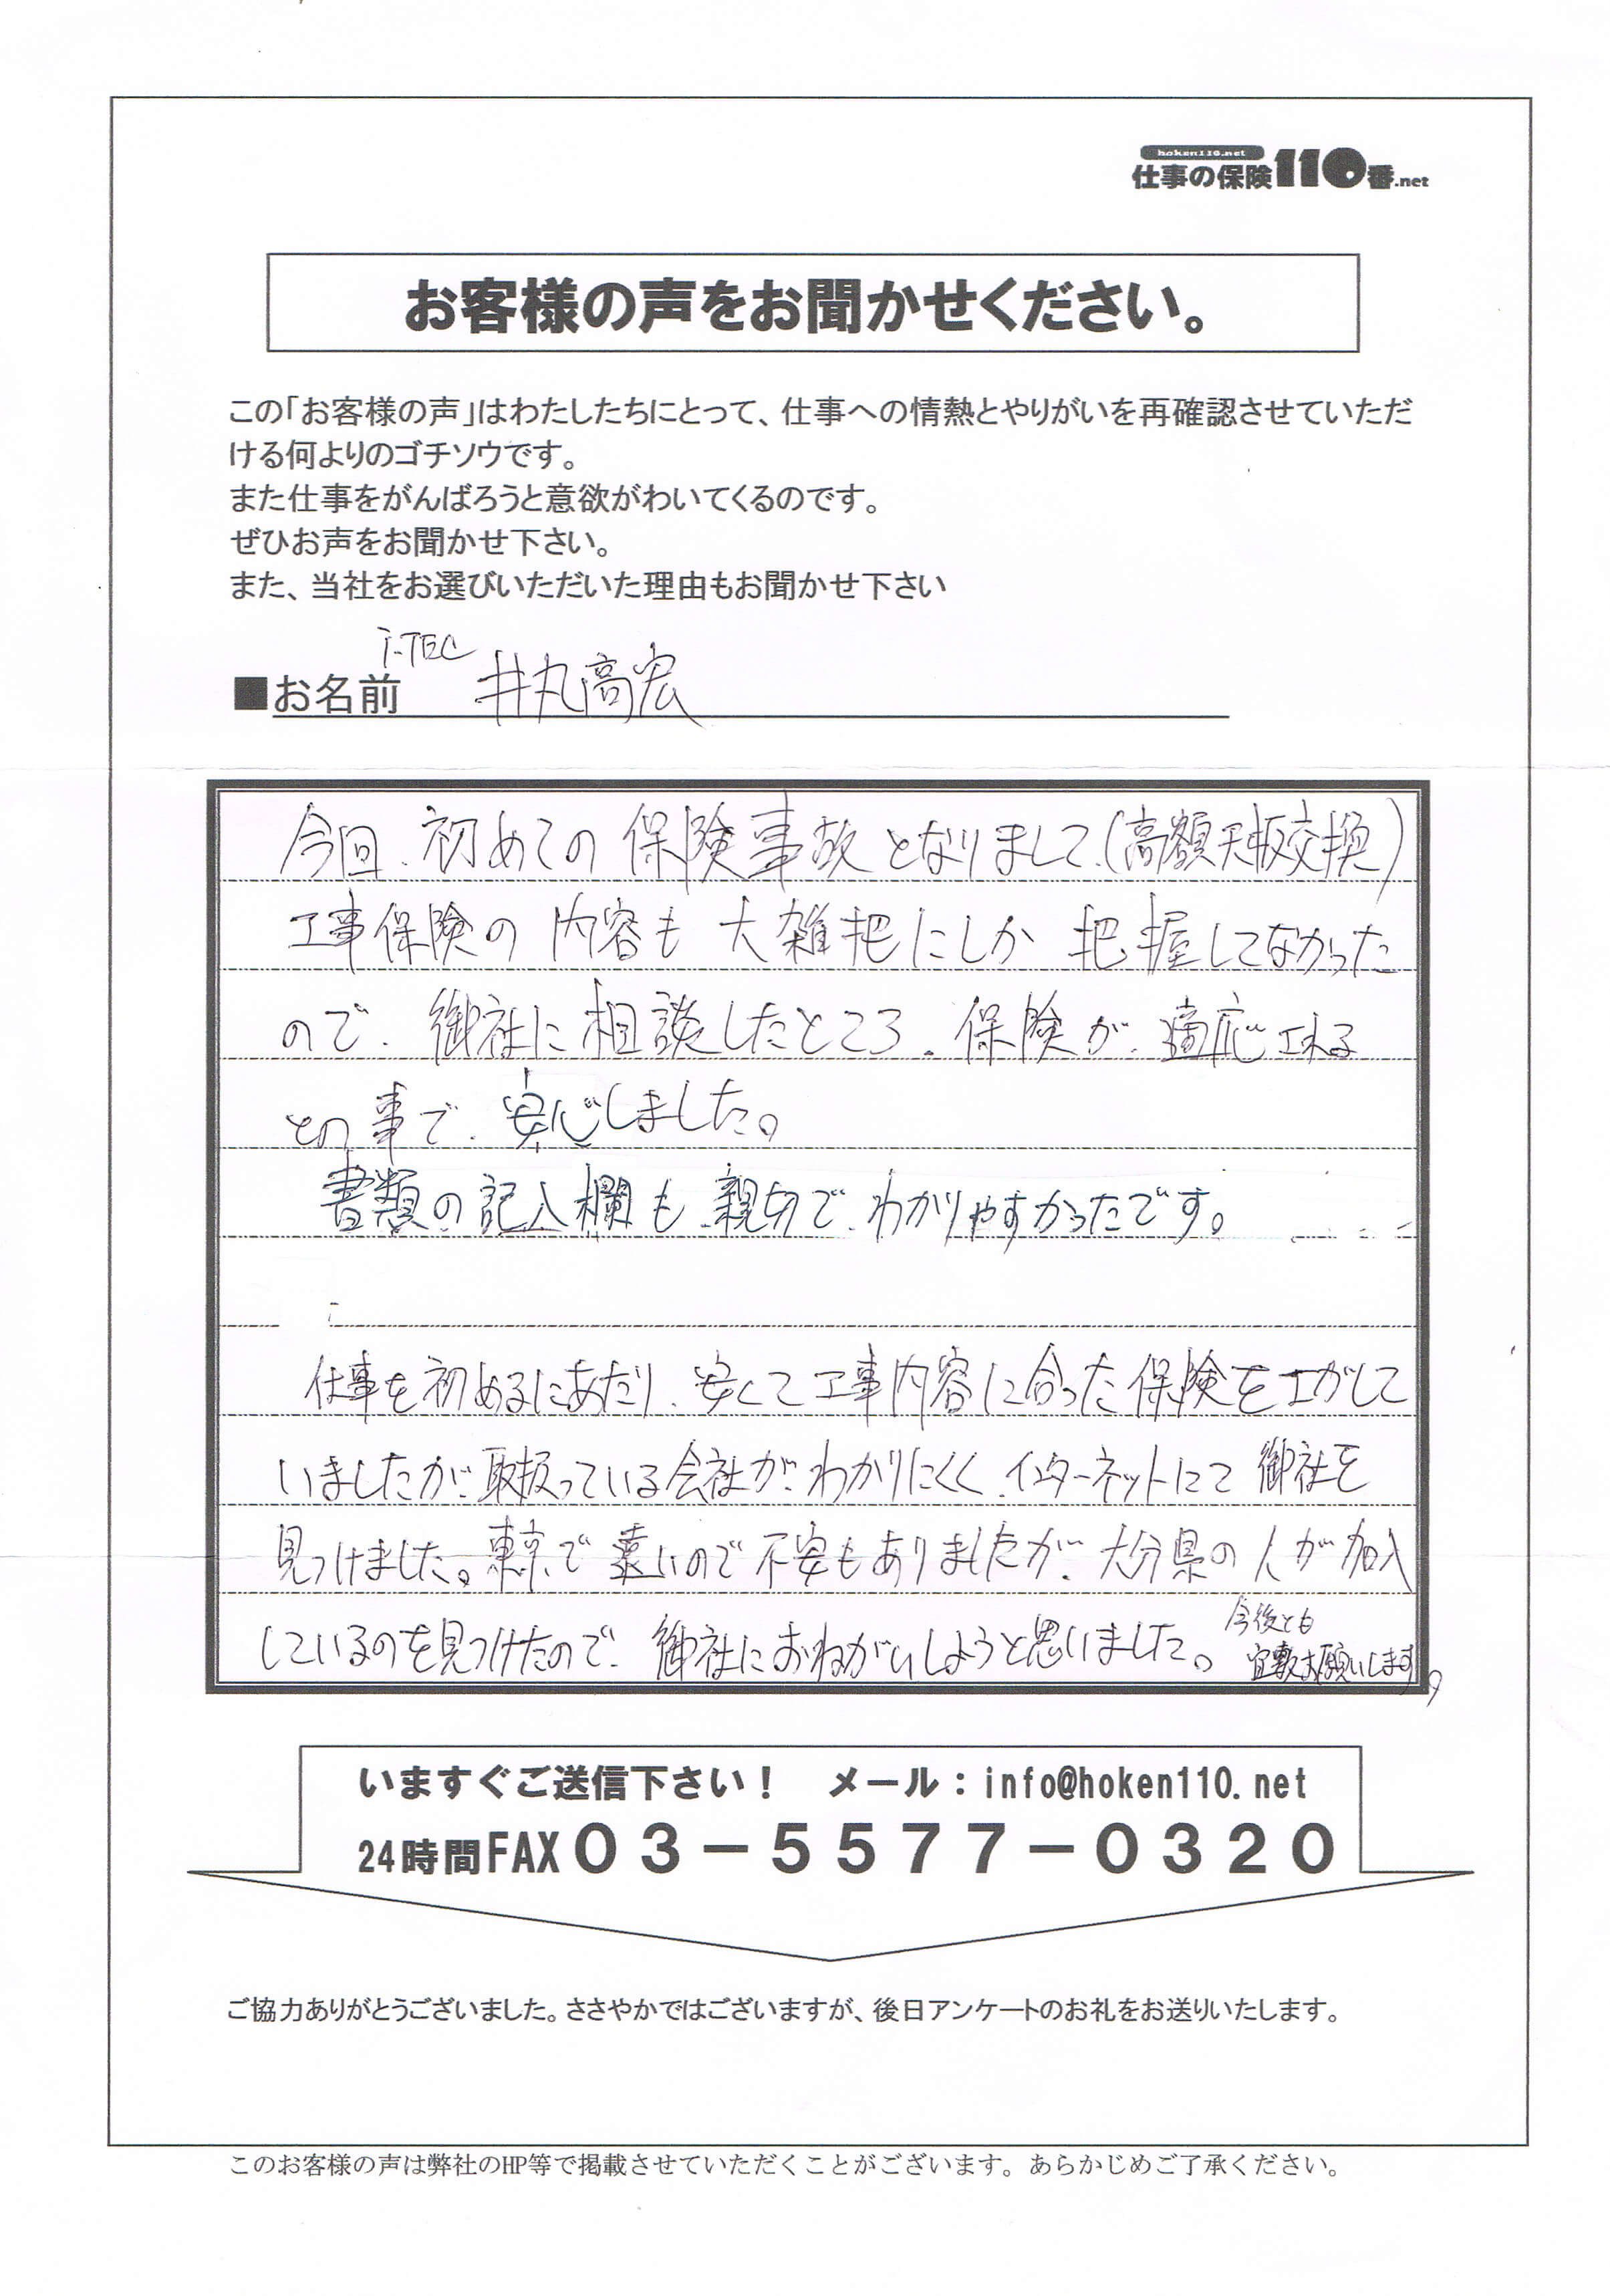 hoken110.net
仕事の保険110番.net
お客様の声をお聞かせください。
この「お客様の声」はわたしたちにとって、仕事への情熱とやりがいを再確認させていただ
ける何よりのゴチソウです。
また仕事をがんばろうと意欲がわいてくるのです。
ぜひお声をお聞かせ下さい。
また、当社をお選びいただいた理由もお聞かせ下さい
i-TEC
■お名前 井丸高宏
今回、初めての保険事故となりまして、(高額天板交換)
工事保険の内容も大雑把にしか把握してなかった
ので、御社に相談したところ、保険が、適応される
との事で、安心しました。
書類の記入欄も親切で、わかりやすかったです。
仕事を初めるにあたり、安くて工事内容に合った保険をさがして
いましたが、取扱っている会社が、わかりにくく、インターネットにて御社を
見つけました。東京で遠いので不安もありましたが、大分県の人が加入
しているのを見つけたので、御社におねがいしようと思いました。
今後とも
宜敷お願いします。
いますぐご送信下さい！　メール：info@hoken110.net
24時間FAX０３－５５７７－０３２０
ご協力ありがとうございました。ささやかではございますが、後日アンケートのお礼をお送りいたします。
このお客様の声は弊社のHP等で掲載させていただくことがございます。あらかじめご了承ください。